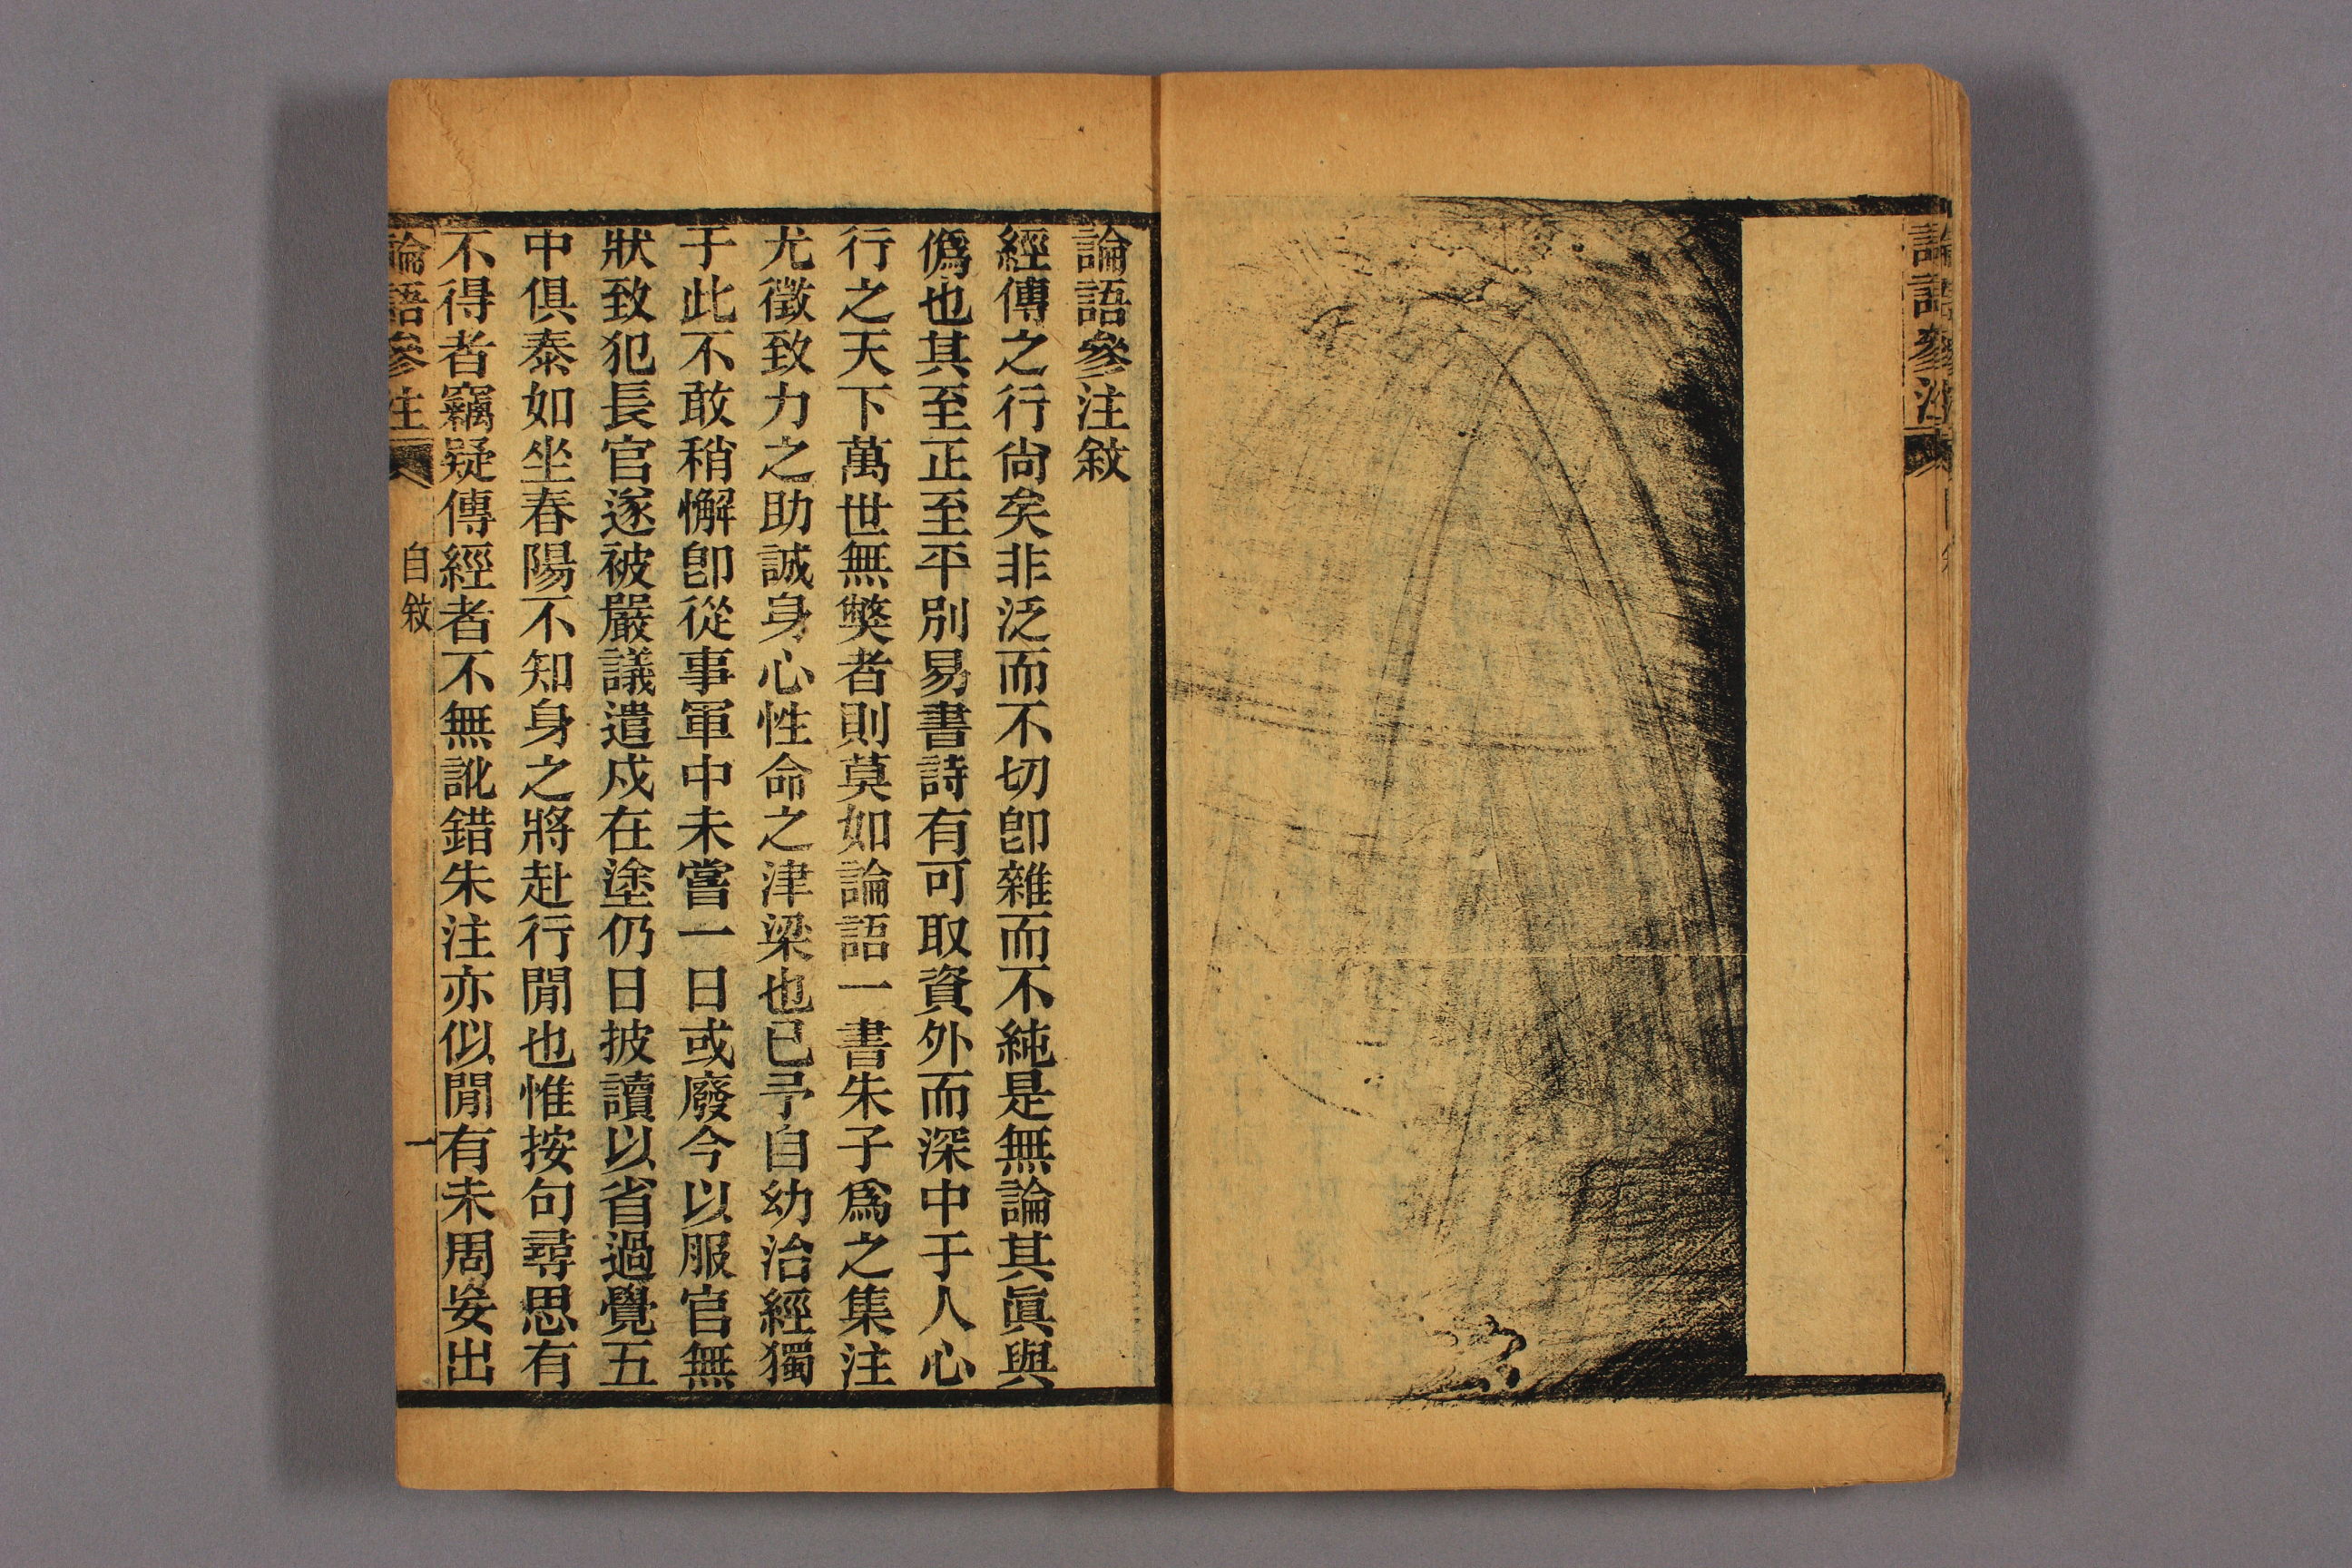 論語參注
論語參注敘
經傳之行尙矣非泛而不切卽雜而不純是無論其眞與
僞也其至正至平別易書詩有可取資外而深中于人心
行之天下萬世無獘者則莫如論語一書朱子爲之集注
尤徵致力之助誠身心性命之津梁也已予自幼治經獨
于此不敢稍懈卽從事軍中未嘗一日或廢今以服官無
狀致犯長官遂被嚴議遣戍在塗仍日披讀以省過覺五
中俱泰如坐春陽不知身之將赴行閒也惟按句尋思有
不得者竊疑傳經者不無訛錯朱注亦似閒有未周妄出
論語參注 自敘 一